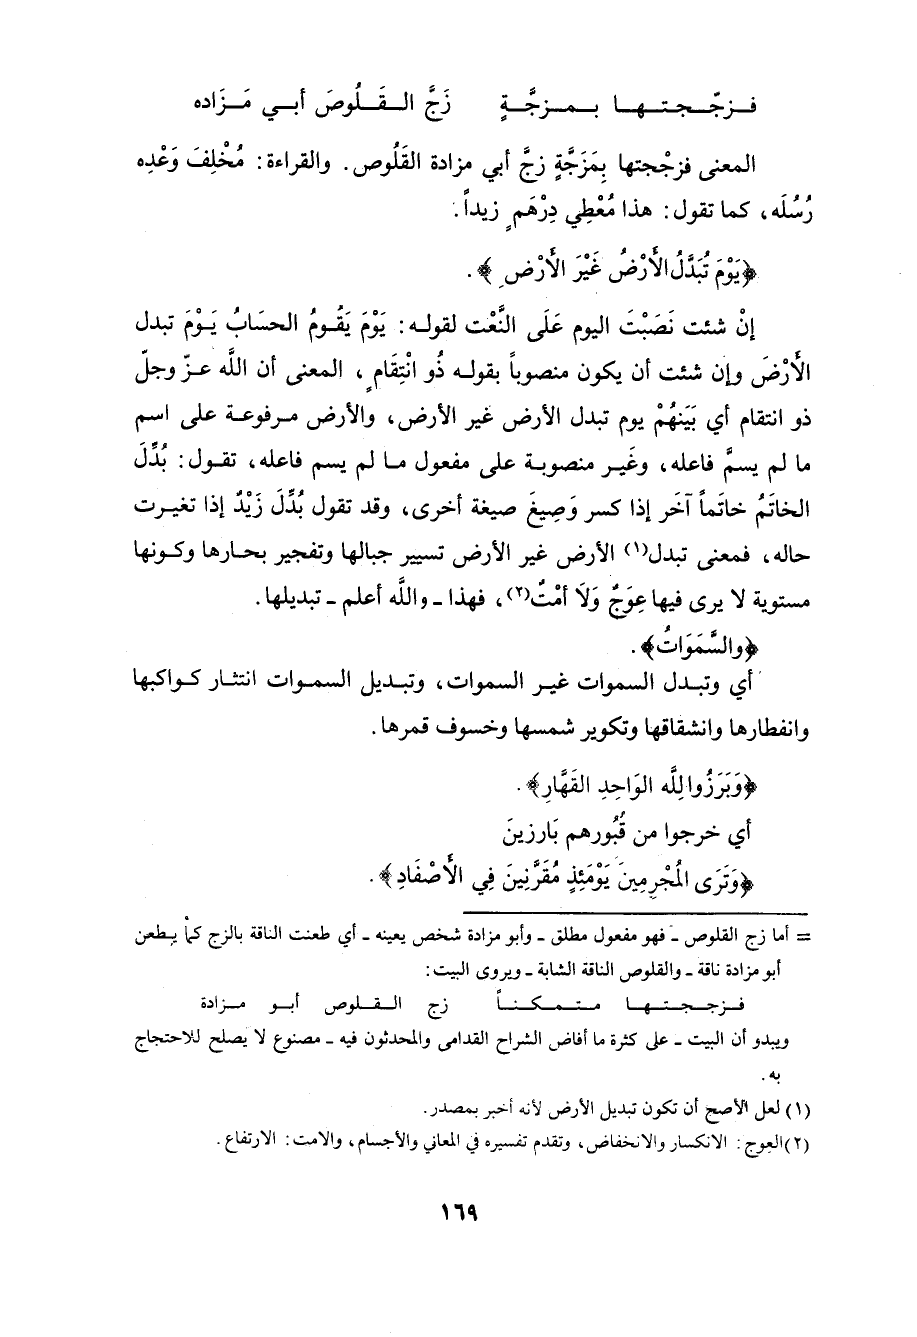 فـزجّـجـتـهـا بـمـزجَّـةٍ زَجَّ الـقَـلُوصَ أبـي مَـزَاده
المعنى فزجْجتها بِمَزَجَّةٍ زجَّ أبي مزادة القَلُوص. والقراءة: مُخْلِفَ وَعْدِه
رُسُلَه، كما تقول: هذا مُعْطِي دِرْهَمٍ زيداً.
﴿يَوْمَ تُبَدَّلُ الأَرْضُ غَيْرَ الأَرْضِ﴾.
إنْ شئت نَصَبْتَ اليوم عَلَى النَّعْت لقوله: يَوْمَ يَقُومُ الحسَابُ يَوْمَ تبدل
الأَرْضَ وإن شئت أن يكون منصوباً بقوله ذُو انْتِقَامٍ، المعنى أن اللَّه عزّ وجلّ
ذو انتقام أي بَيَنهُمْ يوم تبدل الأرض غير الأرض، والأرض مرفوعة على اسم
ما لم يسمَّ فاعله، وغَير منصوبة على مفعول ما لم يسم فاعله، تقول: بُدِّلَ
الخاتَمُ خاتَماً آخَر إذا كسر وَصِيغَ صيغة أخرى، وقد تقول بُدِّلَ زَيْدٌ إذا تغيرت
حاله، فمعنى تبدل(١) الأرض غير الأرض تسيير جبالها وتفجير بحارها وكونها
مستوية لا يرى فيها عِوَجٌ وَلَا أمْتٌ(٢)، فهذا - واللَّه أعلم - تبديلها.
﴿والسَّمَوَاتُ﴾.
أي وتبدل السموات غير السموات، وتبديل السموات انتثار كواكبها
وانفطارها وانشقاقها وتكوير شمسها وخسوف قمرها.
﴿وَبَرَزُوا لِلَّه الوَاحِدِ القَهَّارِ﴾.
أي خرجوا من قُبُورهم بَارزينَ
﴿وَتَرَى المُجْرِمِينَ يَوْمَئِذٍ مُقَرَّنِينَ فِي الأَصْفَادِ﴾.
= أما زج القلوص - فهو مفعول مطلق - وأبو مزادة شخص يعينه - أي طعنت الناقة بالزج كما يطعن
أبو مزادة ناقة - والقلوص الناقة الشابة - ويروى البيت:
فـزجـجـتـهـا متـمـكـنـاً زج الـقـلوص أبـو مـزادة
ويبدو أن البيت - على كثرة ما أفاض الشراح القدامى والمحدثون فيه - مصنوع لا يصلح للاحتجاج
به.
(١) لعل الأصح أن تكون تبديل الأرض لأنه أخبر بمصدر.
(٢) العوج: الانكسار والانخفاض، وتقدم تفسيره في المعاني والأجسام، والامت: الارتفاع.
١٦٩